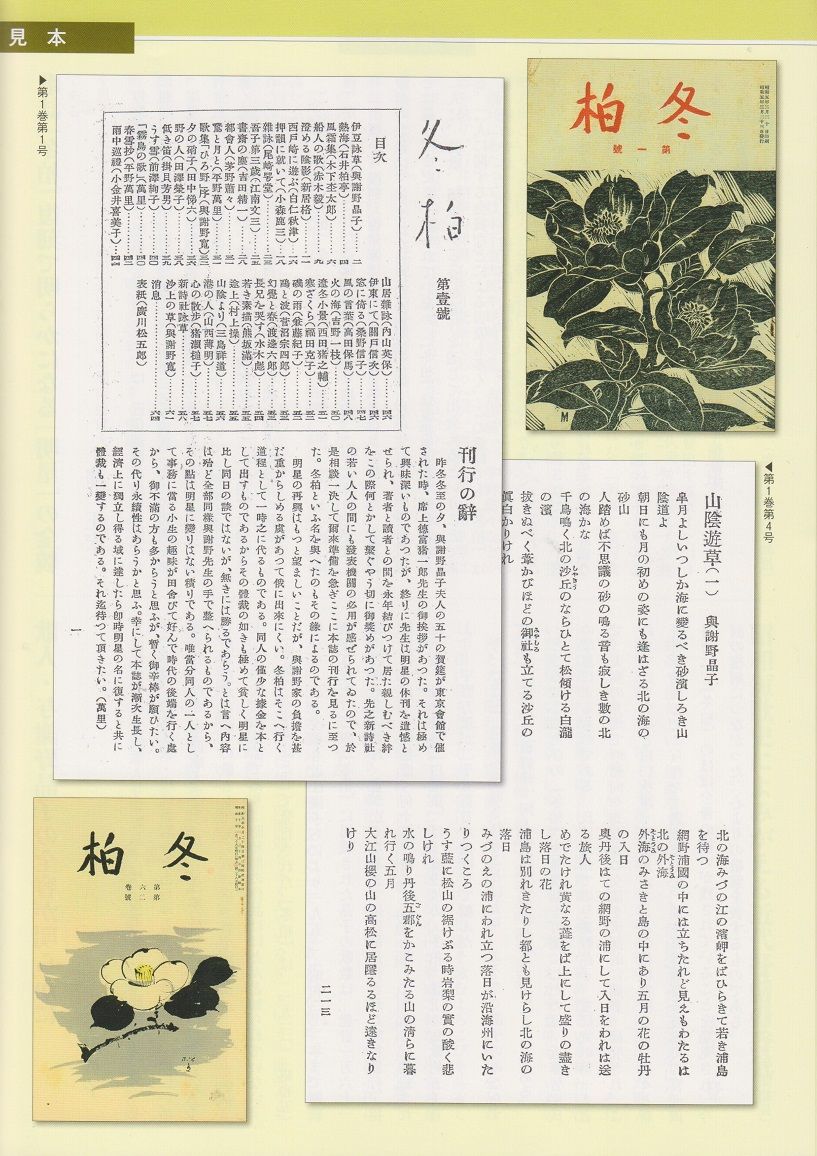 見本
▶第1巻第1号
冬柏
第一號
冬柏
第壹號
目次
伊豆詠草(與謝野晶子)…二
熱海(石井柏亭)…四
風霜集(木下杢太郎)…六
船人の歌(赤木毅)…九
澄める陰影(新居格)…一一
西戸崎に遊ぶ(白仁秋津)…一六
押韻に就いて(小森鹿三)…一八
雜詠(尾崎咢堂)…二三
吾子第三歳(江南文三)…二五
書齋の塵(吉田精一)…二八
都會人(茅野蕭々)…三一
驚と月と(平野萬里)…三一
歌集「ひろ野」序(與謝野寛)…三三
夕の硝子(田中悌六)…三六
野の人(田澤榮子)…三七
低き笛(掛貝芳男)…三八
うす雪(前澤絢子)…四〇
「霧島の歌」(萬里)…四〇
春雪抄(平野萬里)…四一
雨中巡禮(小金井喜美子)…四四
山居雜詠(内山英保)…四六
伊東にて(關戸信次)…四六
窓に倚る(桑野信子)…四七
風の言葉(高田保馬)…四八
火の海(吉野一枝)…五〇
遼冬小景(西田猪之輔)…五一
寒ざくら(福田克子)…五二
磯の雨(兼藤紀子)…五二
鴎と波(菅沼宗四郎)…五三
幻覺と春(渡邊六郎)…五三
長兄を哭す(水木彪)…五四
若き素描(熊坂滿)…五五
途上(村上操)…五五
山陰より(三島祥道)…五六
港の人(山西薄明)…五七
心の散歩(猪瀬槌子)…五七
新詩社詠草…五八
沙上の草(與謝野寛)…六一
消息…六四
表紙(廣川松五郎)
刊行の辭
昨冬冬至の夕、與謝野晶子夫人の五十の賀筵が東京會館で催
された時、席上徳富猪一郎先生の御挨拶があつた。それは極め
て興味深いものであつたが、終りに先生は明星の休刊を遺憾と
せられ、著者と讀者との間を永年結びつけて居た親しむべき絆
をこの際何とかして繋ぐやう切に御奬めがあつた。先之新詩社
の若い人人の間にも發表機關の必用が感ぜられてゐたので、於
是相談一決して爾來準備を急ぎここに本誌の刊行を見るに至つ
た。冬柏といふ名を與へたのもその縁によるのである。
明星の再興はもつと望ましいことだが、與謝野家の負擔を甚
だ重からしめる虞があつて俄に出來にくい。冬柏はそこへ行く
道程として一時之に代るものである。同人の僅少な醵金を本と
して出すものであるからその體裁の如きも極めて貧しく明星に
比し同日の談ではないが、無きには勝るであらう。とは言へ内容
は殆ど全部同樣與謝野先生の手で整へられるものであるから、
その點は明星に變りはない積りである。唯當分同人の一人とし
て事務に當る小生の趣味が田舍びて好んで時代の後端を行く處
から、御不滿の方も多からうと思ふが、暫く御辛棒が願ひたい。
その代り永續性はあらうかと思ふ。幸にして本誌が漸次生長し、
經濟上に獨立し得る域に達したら即時明星の名に復すると共に
體裁も一變するのである。それ迄待つて頂きたい。(萬里)
一
▶第1巻第4号
山陰遊草(一) 與謝野晶子
皐月よしいつしか海に變るべき砂濱しろき山
陰道よ
朝日にも月の初めの姿にも逢はざる北の海の
砂山
人踏めば不思議の砂の鳴る音も寂しき數の北
の海かな
千鳥鳴く北の沙丘のならひとて松傾ける白瀧
の濱
拔きぬべく葦かびほどの御社も立てる沙丘の
眞白かりけれ
北の海みづの江の濱岬をばひらきて若き浦島
を待つ
網野浦國の中には立ちたれど見えもわたるは
北の外海
外海のみさきと島の中にあり五月の花の牡丹
の入日
奧丹後はての網野の浦にして入日をわれは送
る旅人
めでたけれ黄なる蓮をば上にして盛りの盡き
し落日の花
浦島は別れきたりし都とも見けらし北の海の
落日
みづのえの浦にわれ立つ落日が沿海州にいた
りつくころ
うす藍に松山の裾けぶる時岩梨の實の酸く悲
しけれ
水の鳴り丹後五郡をかこみたる山の清らに暮
れ行く五月
大江山櫻の山の高松に居隱るるほど遠きなり
けり
二一三
冬柏
第六卷
第二號